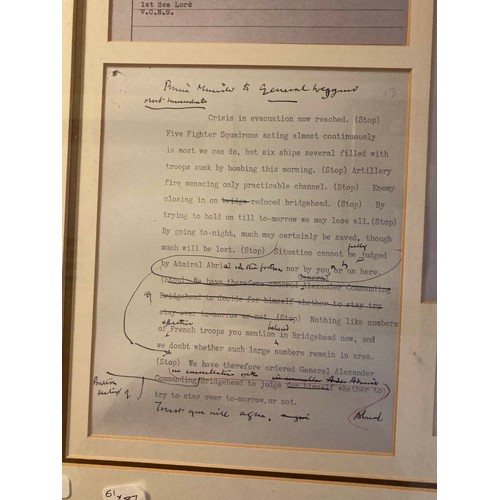 1st Sea Lord
V.C.N.S.
Prime Minister to General Weygand
most immediate
13
Crisis in evacuation now reached. (Stop)
Five Fighter Squadrons acting almost continuously
is most we can do, but six ships several filled with
troops sunk by bombing this morning. (Stop) Artillery
fire menacing only practicable channel. (Stop) Enemy
closing in on bridge reduced bridgehead. (Stop) By
trying to hold on till to-morrow we may lose all.(Stop)
By going to-night, much may certainly be saved, though
much will be lost. (Stop) Situation cannot be fully judged
by Admiral Abrial in the fortress nor by you or by us here.
(Stop) We have therefore ordered General Alexander Commanding
Bridgehead to decide for himself whether to stay try
stay over to-morrow or not. (Stop) Nothing like numbers
of effective French troops you mention behind in Bridgehead now, and
we doubt whether such large numbers remain in area.
(Stop) We have therefore ordered General Alexander
British
Commanding Bridgehead to judge in consultation with for himself whether to
try to stay over to-morrow or not.
Trust you will agree.